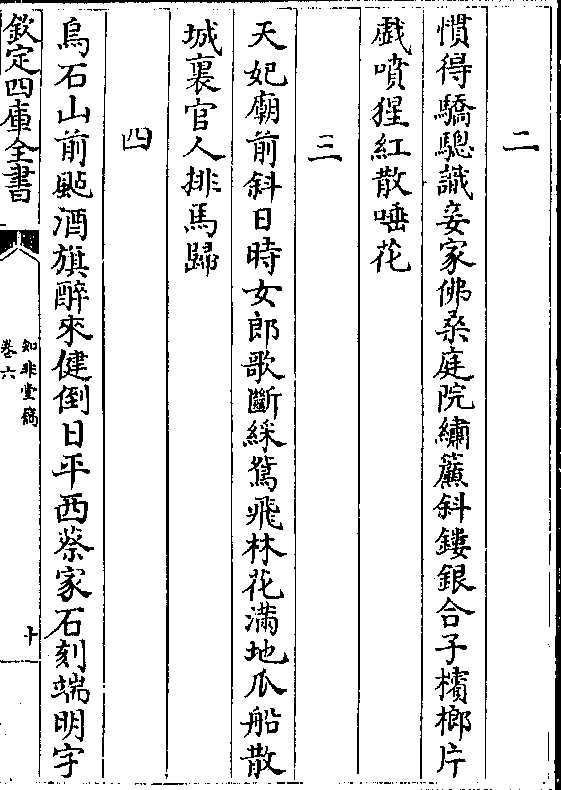 二
慣得驕驄識妾家佛桑庭院繡簾斜鏤銀合子檳榔片
戲噴猩紅散唾花
三
天妃廟前斜日時女郎歌斷綵鴛飛林花滿地瓜船散
城裏官人排馬歸
四
烏石山前颭酒旗醉來健倒日平西蔡家石刻端明字
欽定四庫全書
知非堂稿
卷六
十